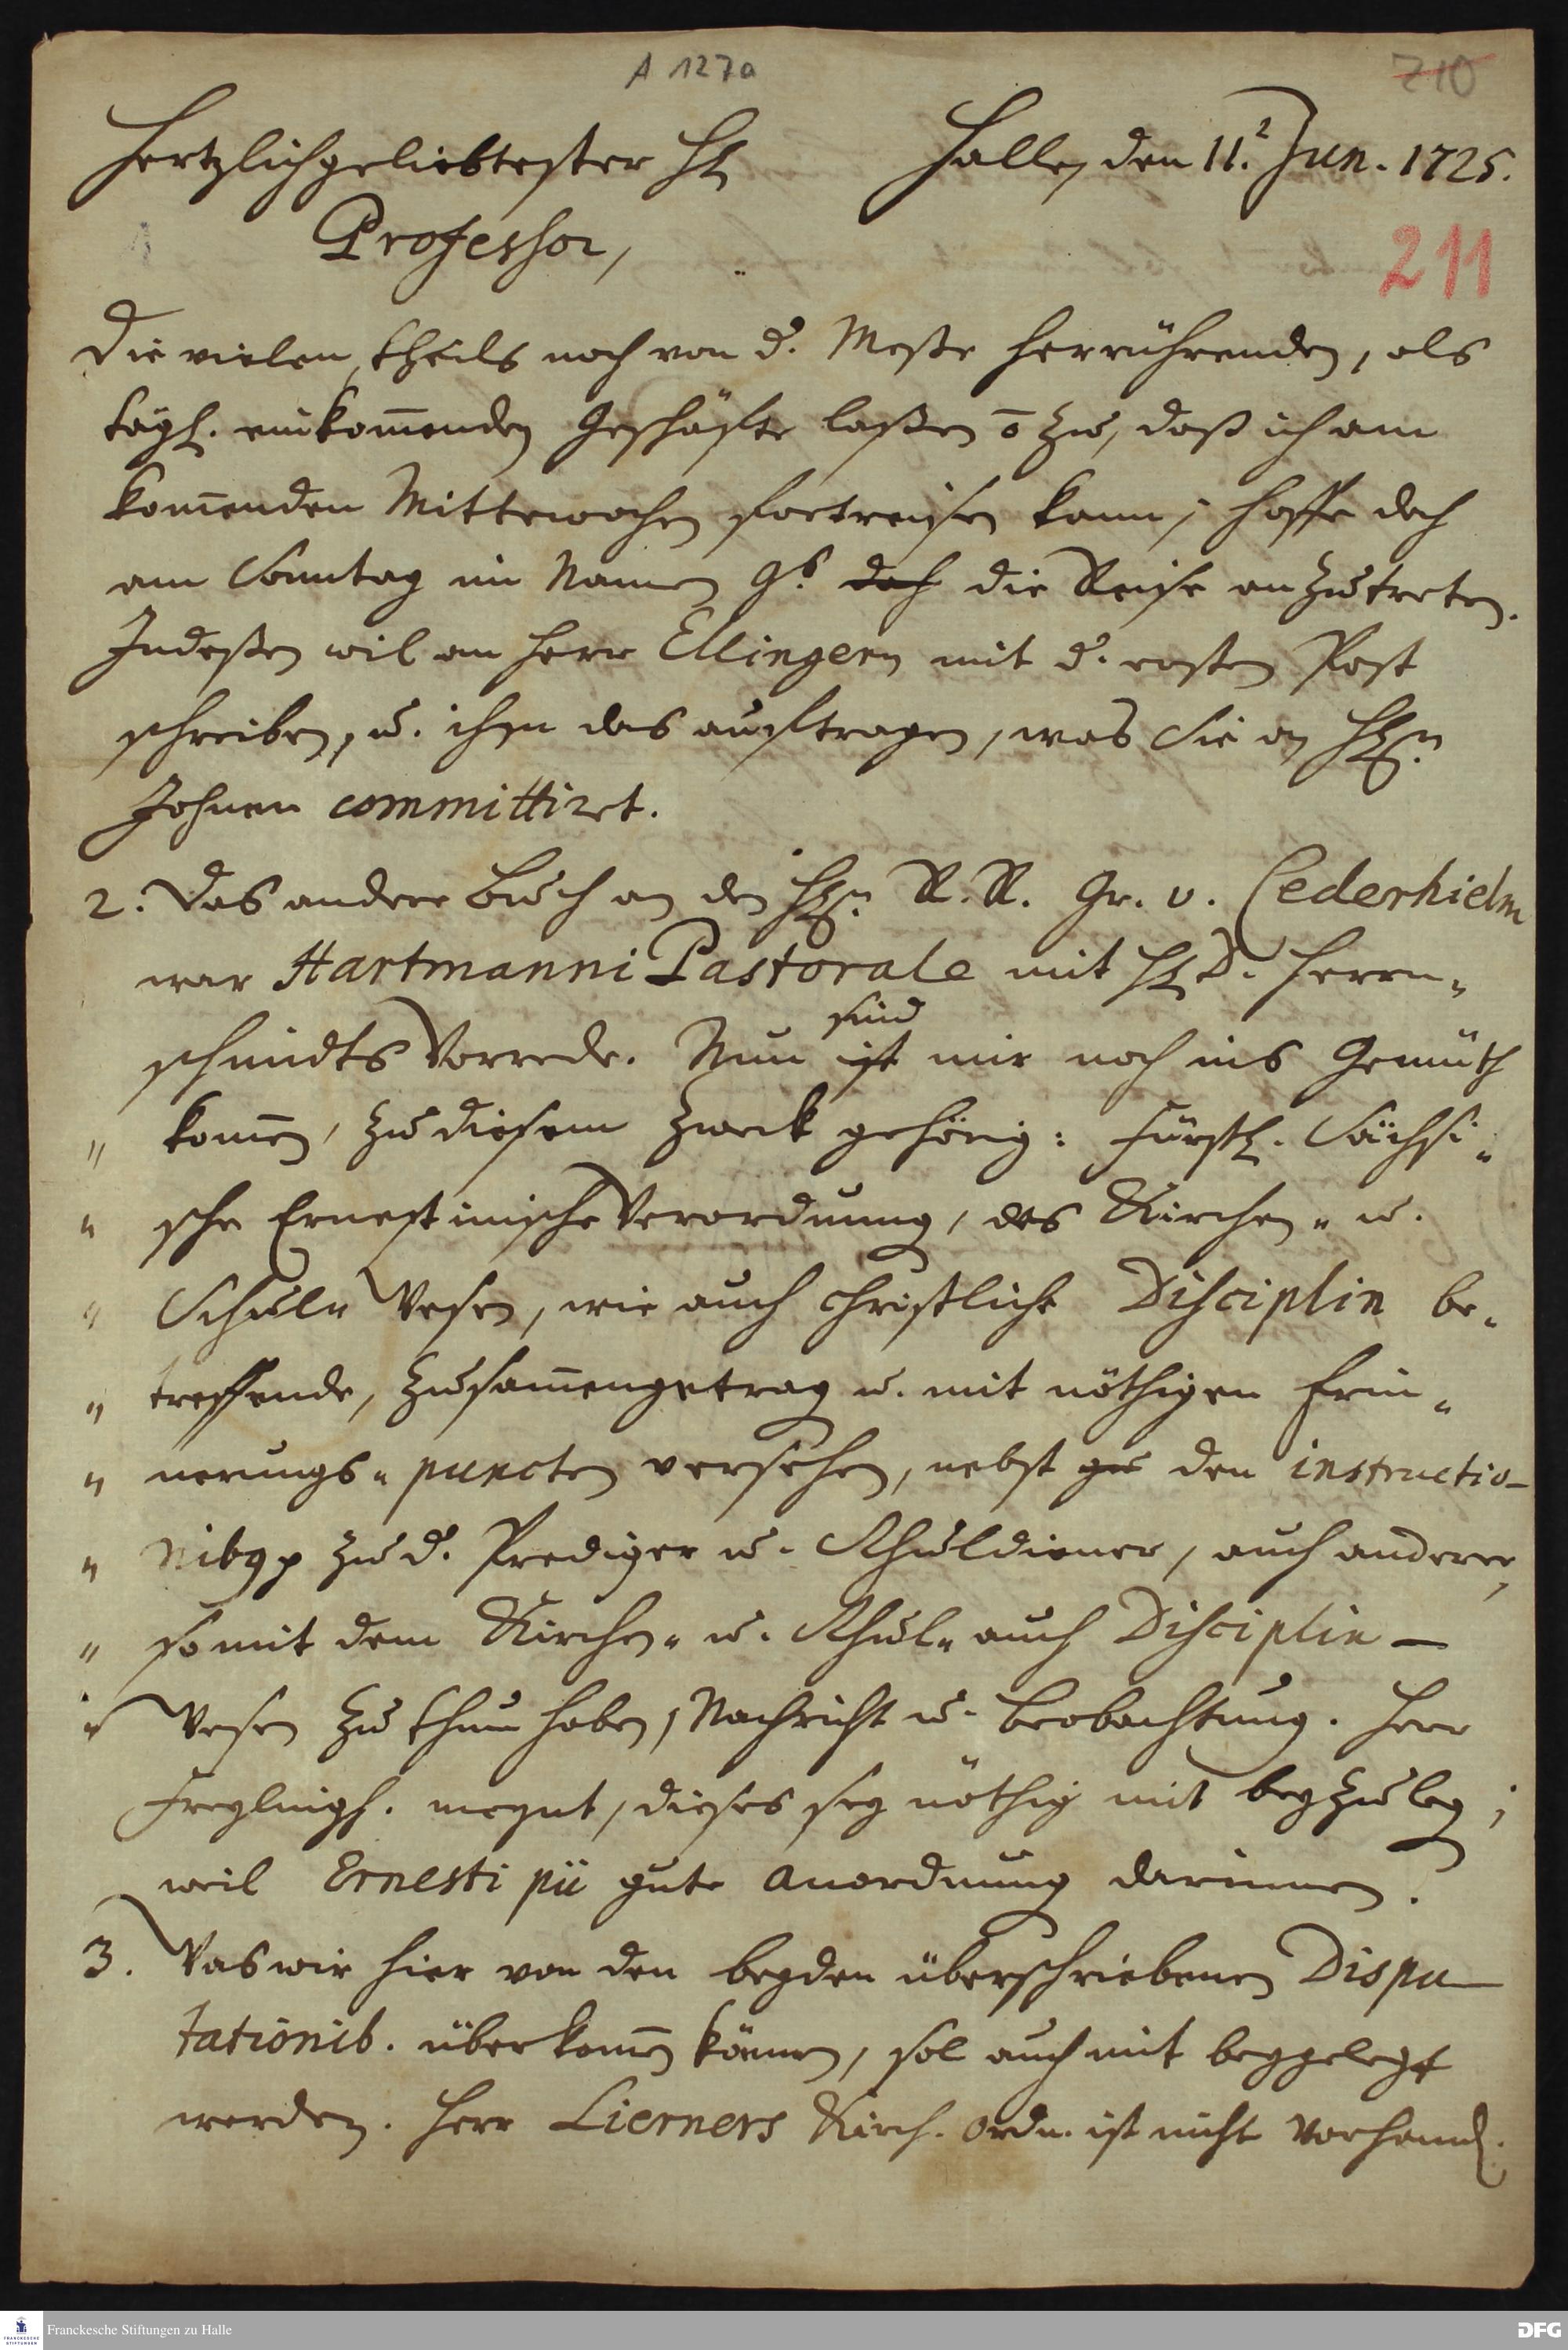 A 127a
710
Hertzlichgeliebtester H.
Halle, den 11. Jun. 1725.
Professor,
211
Die vielen, theils noch von d. Meße herrührenden, als
tägl. einkom̄enden Geschäfte laßen ō zu, daß ich am
kom̄enden Mittewochen fortreisen kann; hoffe doch
am Sonntag im Namen Gs. doch die Reise anzutreten.
Indeßen wil an Herr Ellingern mit d. ersten Post
schreiben, u. ihm das auftragen, was Sie an H.n
Johnen committiret.
2. Das andere Buch an den H.n R. R. Gr. v. Cederhielm
war Hartmanni Pastorale mit H. D. Herrn-
schmidts Vorrede. Nun ist sind mir noch ins Gemüth
kom̄en, zu diesem Zweck gehörig: Fürstl. Sächsi-
" sche Ernestinische Verordnung, das Kirchen- u.
" Schul- Wesen, wie auch christliche Disciplin be-
" treffende, zusam̄engetrag u. mit nöthigen Erin-
" nerungs-puncten versehen, nebst den instructio-
" nib9 p zu d. Prediger u. Schuldiener, auch anderer,
" so mit dem Kirchen- u. Schul- auch Disciplin-
" Wesen zu thun haben, Nachricht u. Beobachtung. Herr
Freylingh. meynt, dieses sey nöthig mit beyzuleg;
weil Ernesti pii gute Anordnung darinnen.
3. Was wir hier von den beyden überschriebenen Dispu-
tationib. überkom̄en können, sol auch mit beygelegt
werden. Herr Lierners Kirch. Ordn. ist nicht vorhand.
Franckesche Stiftungen zu Halle
DFG
FRANCKESCHE
STIFTUNGEN